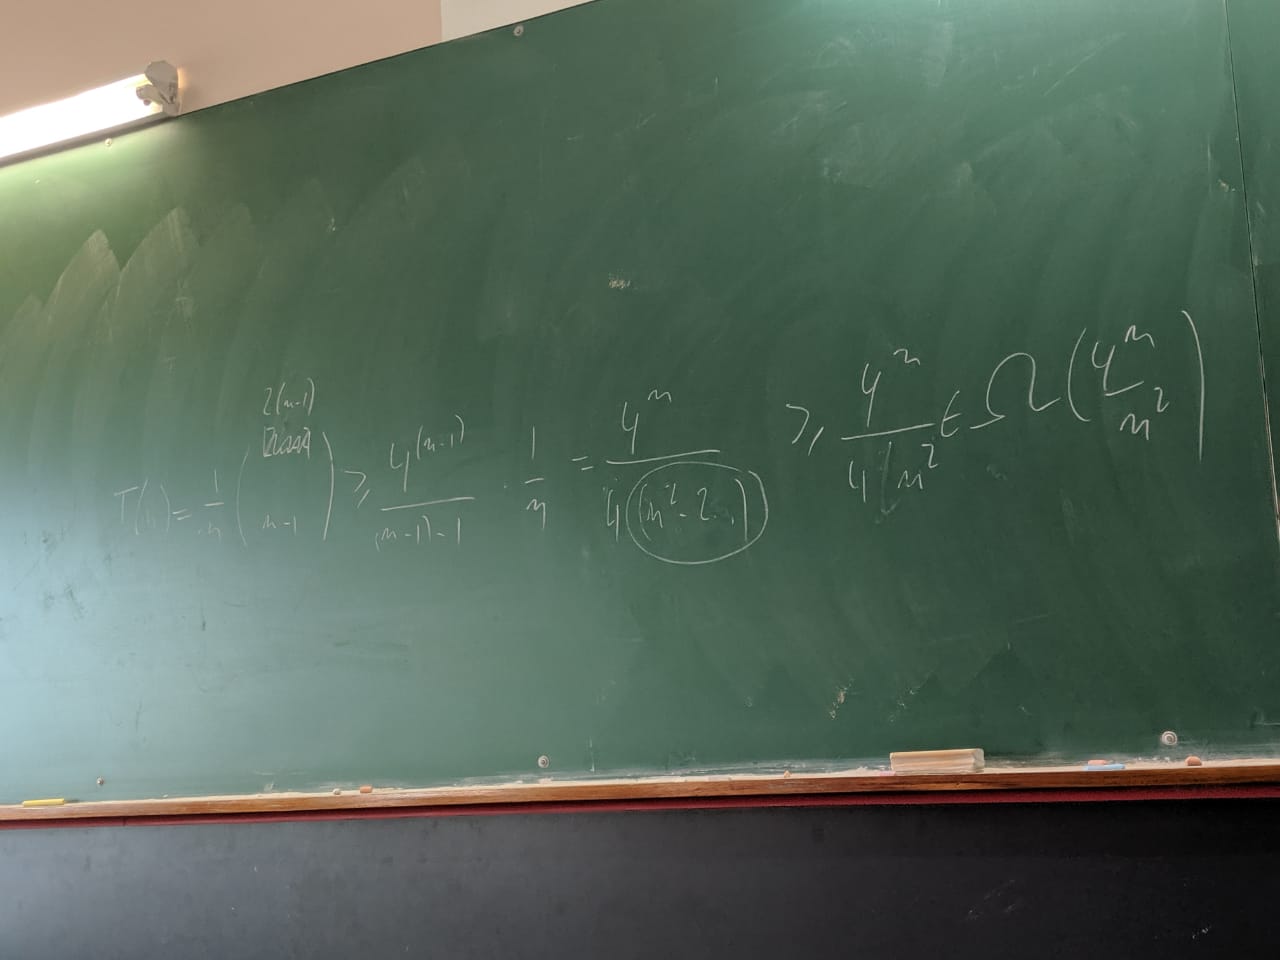 T(n) = 1/n ( 2(n-1) n-1 ) ≥ 4^(n-1) / (n-1)-1 · 1/n = 4^n / 4(n²-2..) ≥ 4^n / 4n² ∈ Ω(4^n / n²)